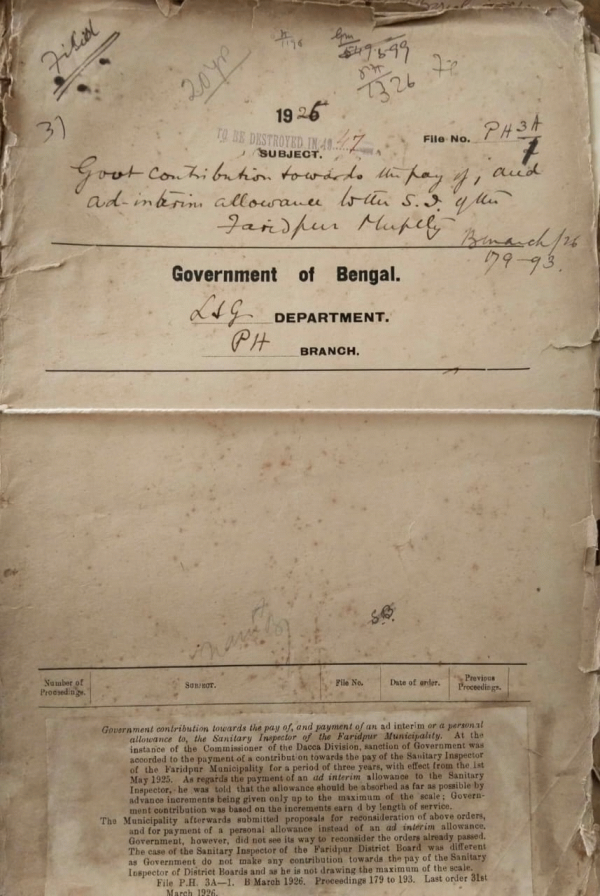 Filed
20 yrs
31
1926
TO BE DESTROYED IN 19 47
File No. PH 3A
1
SUBJECT.
Govt contribution towards the pay of, and
ad-interim allowance to the S.I. of the
Faridpur Muplty
B March/26
179-93.
Government of Bengal.
LSG DEPARTMENT.
PH BRANCH.
Number of Proceedings. Subject. File No. Date of order. Previous Proceedings.
Government contribution towards the pay of, and payment of an ad interim or a personal
allowance to, the Sanitary Inspector of the Faridpur Municipality. At the
instance of the Commissioner of the Dacca Division, sanction of Government was
accorded to the payment of a contribution towards the pay of the Sanitary Inspector
of the Faridpur Municipality for a period of three years, with effect from the 1st
May 1925. As regards the payment of an ad interim allowance to the Sanitary
Inspector, he was told that the allowance should be absorbed as far as possible by
advance increments being given only up to the maximum of the scale; Govern-
ment contribution was based on the increments earn d by length of service.
The Municipality afterwards submitted proposals for reconsideration of above orders,
and for payment of a personal allowance instead of an ad interim allowance.
Government, however, did not see its way to reconsider the orders already passed.
The case of the Sanitary Inspector of the Faridpur District Board was different
as Government do not make any contribution towards the pay of the Sanitary
Inspector of District Boards and as he is not drawing the maximum of the scale.
File P.H. 3A—1. B March 1926. Proceedings 179 to 193. Last order 31st
March 1926.